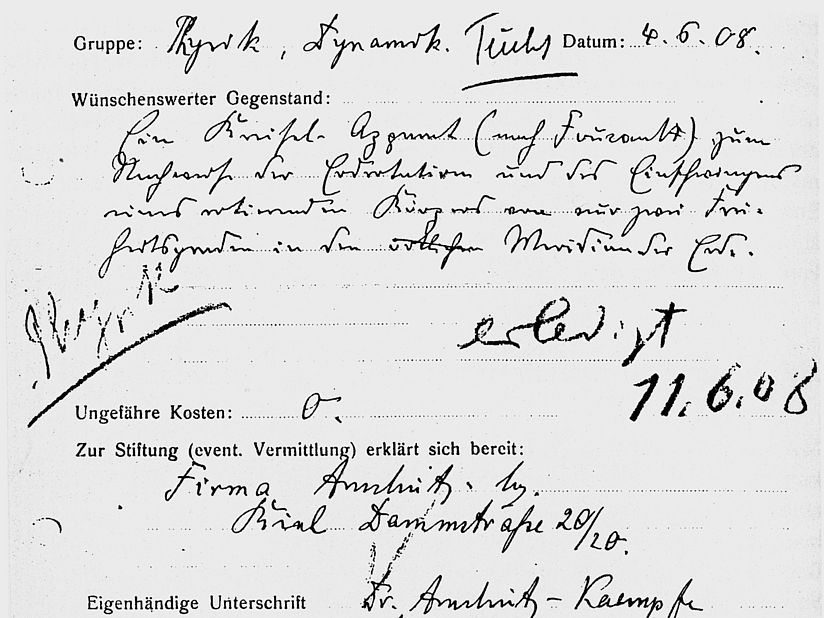 Gruppe: Physik, Dynamik. Datum: 4.6.08.
Wünschenswerter Gegenstand:
Ein Kreisel-Apparat (nach Foucault) zum
Nachweise der Erdrotation und des Einschwingens
eines rotierenden Körpers von nur zwei Frei-
heitsgraden in den örtlichen Meridian der Erde.
Physik
erledigt
11.6.08
Ungefähre Kosten: 0.
Zur Stiftung (event. Vermittlung) erklärt sich bereit:
Firma Anschütz
Kiel Dammstraße 20/20.
Eigenhändige Unterschrift Dr. Anschütz-Kaempfe